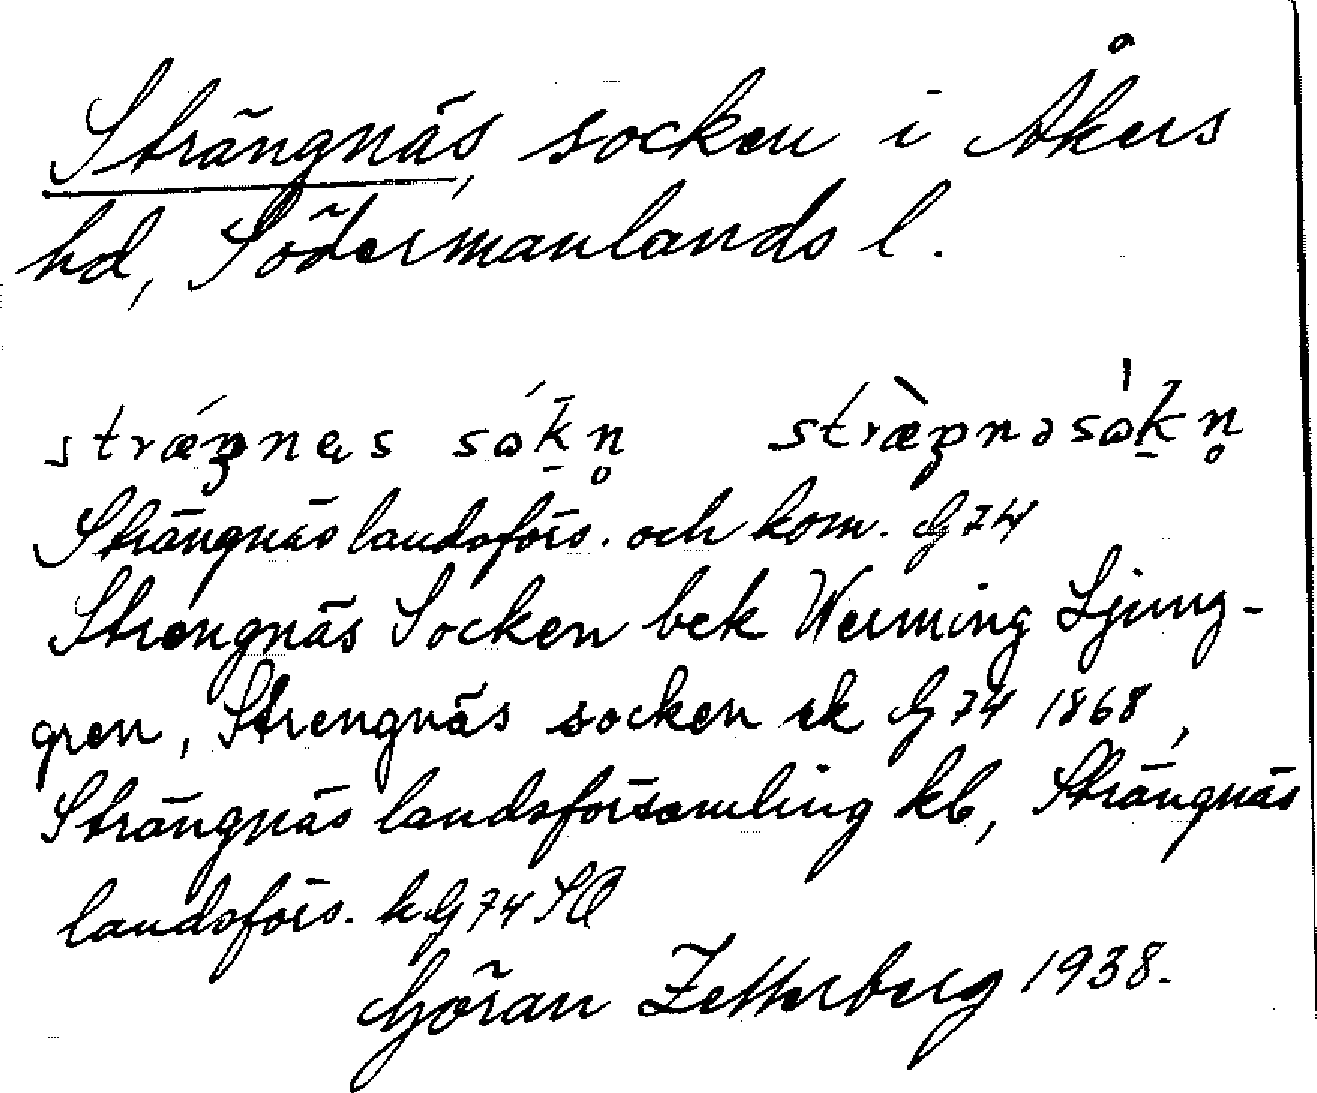 Strängnäs, socken i Åkers
hd, Södermanlands l.
stræŋnes sókn̥ stræ̀ŋnəsòkn̥
Strängnäs landsförs. och kom. G74
Strengnäs Socken bek Werming Ljung-
gren, Strengnäs socken ek G74 1868,
Strängnäs landsförsamling kb, Strängnäs
landsförs. kG74
Göran Zetterberg 1938.